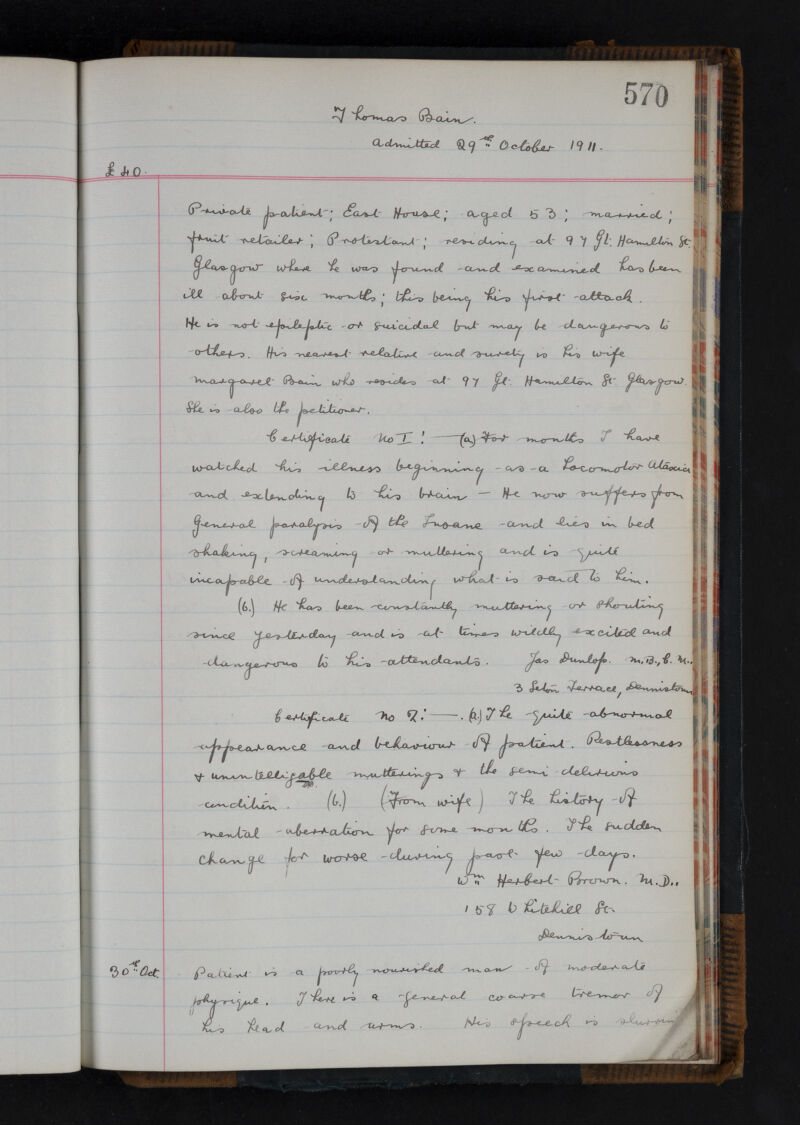 570
Thomas Bain.
Admitted 29th October 1911.
£40.
Private patient; East House; aged 53; married;
fruit retailer; Protestant; residing at 97 Gt. Hamilton St.
Glasgow where he was found and examined has been
ill about six months; this being his first attack.
He is not epileptic or suicidal but may be dangerous to
others. His nearest relative and surety is his wife
Margaret Bain who resides at 97 Gt. Hamilton St. Glasgow.
She is also the petitioner.
Certificate No I: — (a) For months I have
watched his illness beginning as a Locomotor Ataxia
and extending to his brain — He now suffers from
General paralysis of the Insane and lies in bed
shaking, screaming or muttering and is quite
incapable of understanding what is said to him.
(b.) He has been constantly muttering or shouting
since yesterday and is at times wildly excited and
dangerous to his attendants. Jas Dunlop. M.B., C.M.,
3 Seton Terrace, Dennistoun
Certificate No 2: — . (a) The quite abnormal
appearance and behaviour of patient. Restlessness
& unintelligable mutterings & the semi delirious
condition. (b.) (From wife) The history of
mental aberration for some months. The sudden
change for worse during past few days.
Wm Herbert Brown. M.D.,
158 Whitehill St.
Dennistoun
30th Oct. Patient is a poorly nourished man of moderate
physique. There is a general coarse tremor of
his head and arms. His speech is